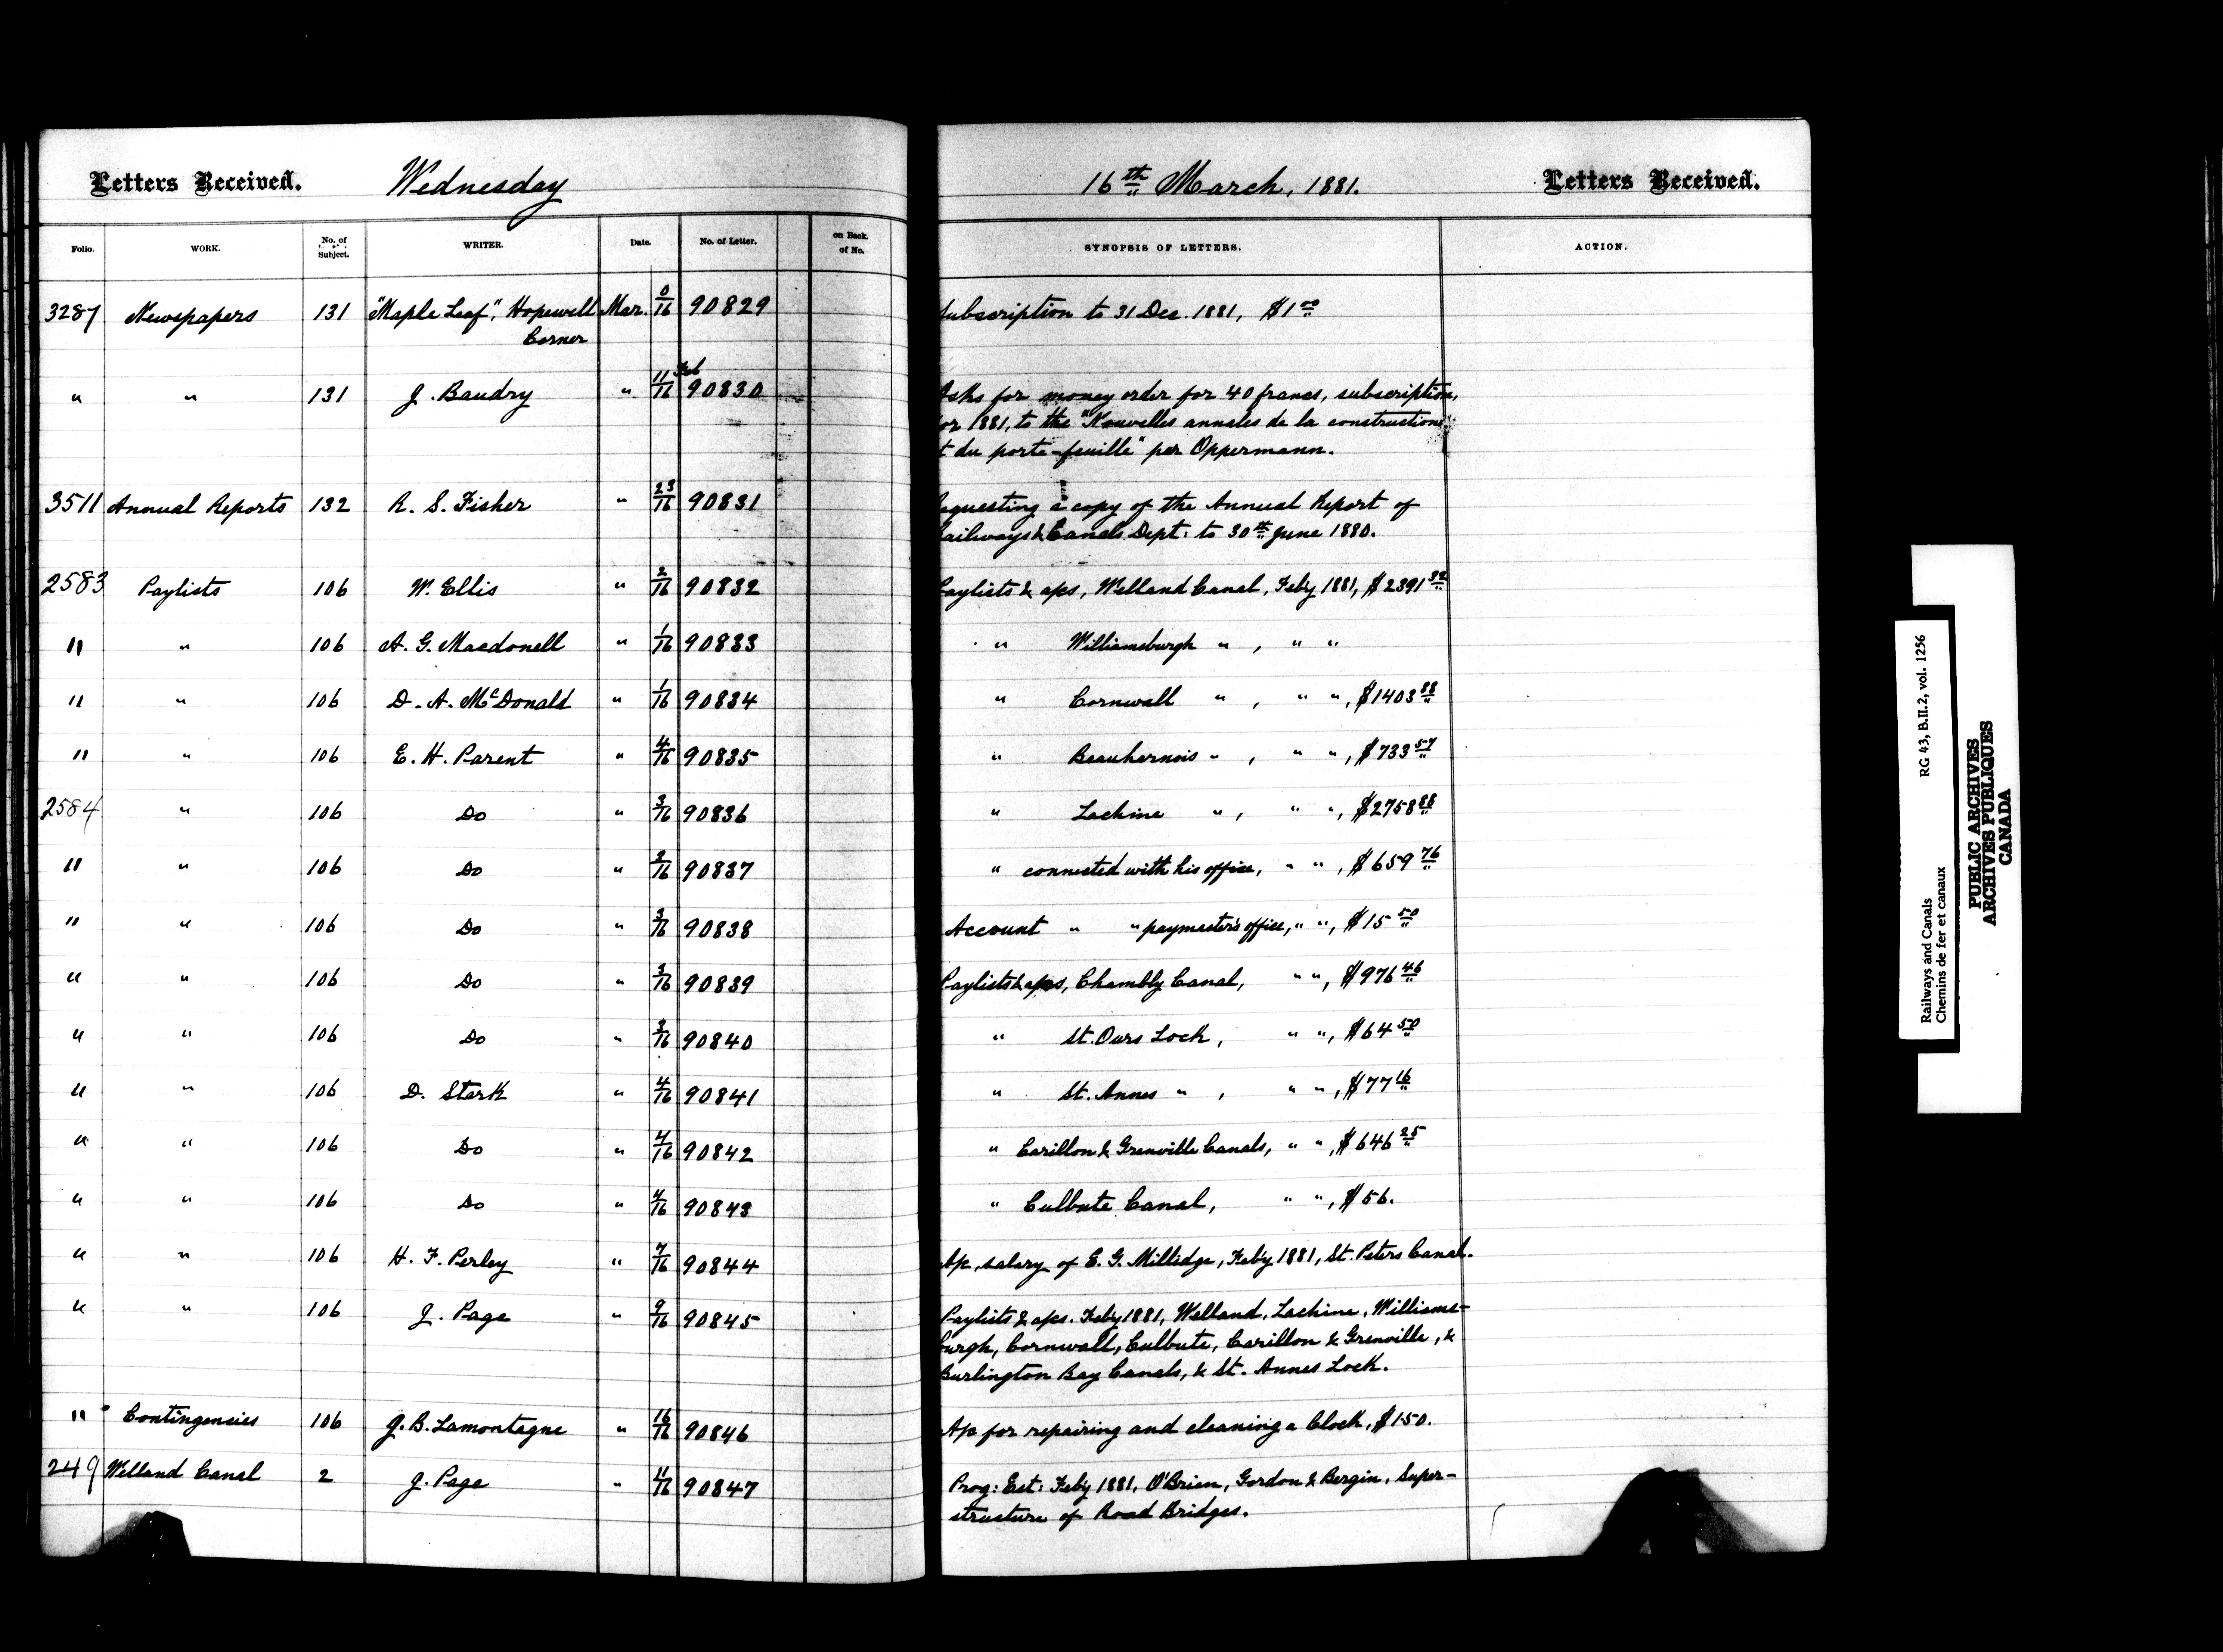 Letters Received. Wednesday 16th March, 1881. Letters Received.
Folio. WORK. No. of Subject. WRITER. Date. No. of Letter. on Back. of No. SYNOPSIS OF LETTERS. ACTION.
3287 Newspapers 131 "Maple Leaf", Hopewell Mar. 0/16 90829 Subscription to 31 Dec. 1881, $1 00
Corner
" " 131 J. Baudry " 11/16 Feb 90830 Asks for money order for 40 francs, subscription,
for 1881, to the "Nouvelles annales de la construction
et du porte-feuille" par Oppermann.
3511 Annual Reports 132 R. S. Fisher " 23/16 90831 Requesting a copy of the Annual Report of
Railways & Canals Dept: to 30th June 1880.
2583 Paylists 106 W. Ellis " 2/16 90832 Paylists & a/cs, Welland Canal, Feby 1881, $2391 32
" " 106 A. G. Macdonell " 1/16 90833 " Williamsburgh " , " "
" " 106 D. A. McDonald " 1/16 90834 " Cornwall " , " " , $1403 88
" " 106 E. H. Parent " 4/16 90835 " Beauharnois " , " " , $733 57
2584 " 106 Do " 3/16 90836 " Lachine " , " " , $2758 88
" " 106 Do " 3/16 90837 " connected with his office, " " , $659 76
" " 106 Do " 3/16 90838 Account " " paymaster's office, " " , $15 50
" " 106 Do " 3/16 90839 Paylists & a/cs, Chambly Canal, " " , $976 46
" " 106 Do " 3/16 90840 " St. Ours Lock, " " , $64 50
" " 106 D. Stark " 4/16 90841 " St. Annes " , " " , $77 16
" " 106 Do " 4/16 90842 " Carillon & Grenville Canals, " " , $646 25
" " 106 Do " 4/16 90843 " Culbute Canal, " " , $56.
" " 106 H. F. Perley " 7/16 90844 A/c, salary of E. G. Millidge, Feby 1881, St. Peters Canal.
" " 106 J. Page " 9/16 90845 Paylists & a/cs. Feby 1881, Welland, Lachine, Williams-
burgh, Cornwall, Culbute, Carillon & Grenville, &
Burlington Bay Canals, & St. Annes Lock.
" Contingencies 106 J. B. Lamontagne " 16/16 90846 A/c for repairing and cleaning a Clock, $1.50.
249 Welland Canal 2 J. Page " 11/16 90847 Prog: Est: Feby 1881, O'Brien, Gordon & Bergin, Super-
structure of Road Bridges.
Railways and Canals RG 43, B.II.2, vol. 1256
Chemins de fer et canaux
PUBLIC ARCHIVES
ARCHIVES PUBLIQUES
CANADA